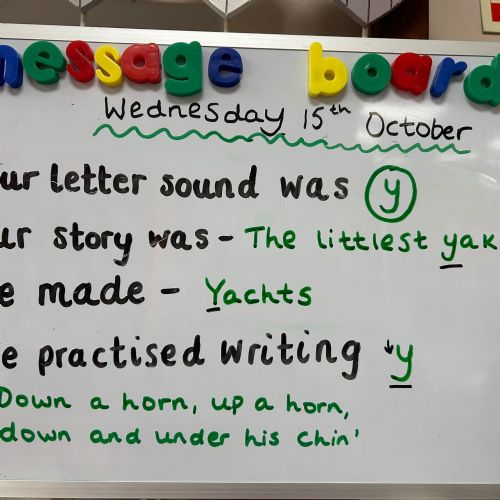 message board
Wednesday 15th October
ur letter sound was y
ur story was - The littlest yak
e made - Yachts
e practised writing y
Down a horn, up a horn,
down and under his chin'